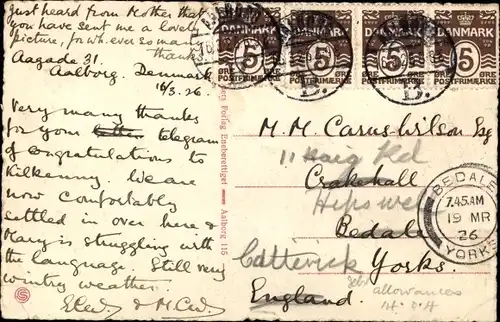 Just heard from Mother that
you have sent me a lovely
picture, for wh. ever so many
thanks
Aagade 31.
Aalborg. Denmark
16/3.26.
Very many thanks
for your telegram
of congratulations to
Kilkenny. We are
now comfortably
settled in over here &
Mary is struggling with
the language. Still very
wintry weather.
DANMARK
5
ØRE
POSTFRIMÆRKE
DANMARK
5
ØRE
POSTFRIMÆRKE
DANMARK
5
ØRE
POSTFRIMÆRKE
DANMARK
5
ØRE
POSTFRIMÆRKE
B.
B.
Forlag Eneberettiget — Aalborg 115
M. M. Carus-Wilson Esq
11 Haig Rd
Crakehall
Hipswell
Bedale
Catterick
Yorks.
England.
allowances
BEDALE
7.45 AM
19 MR
26
YORKS